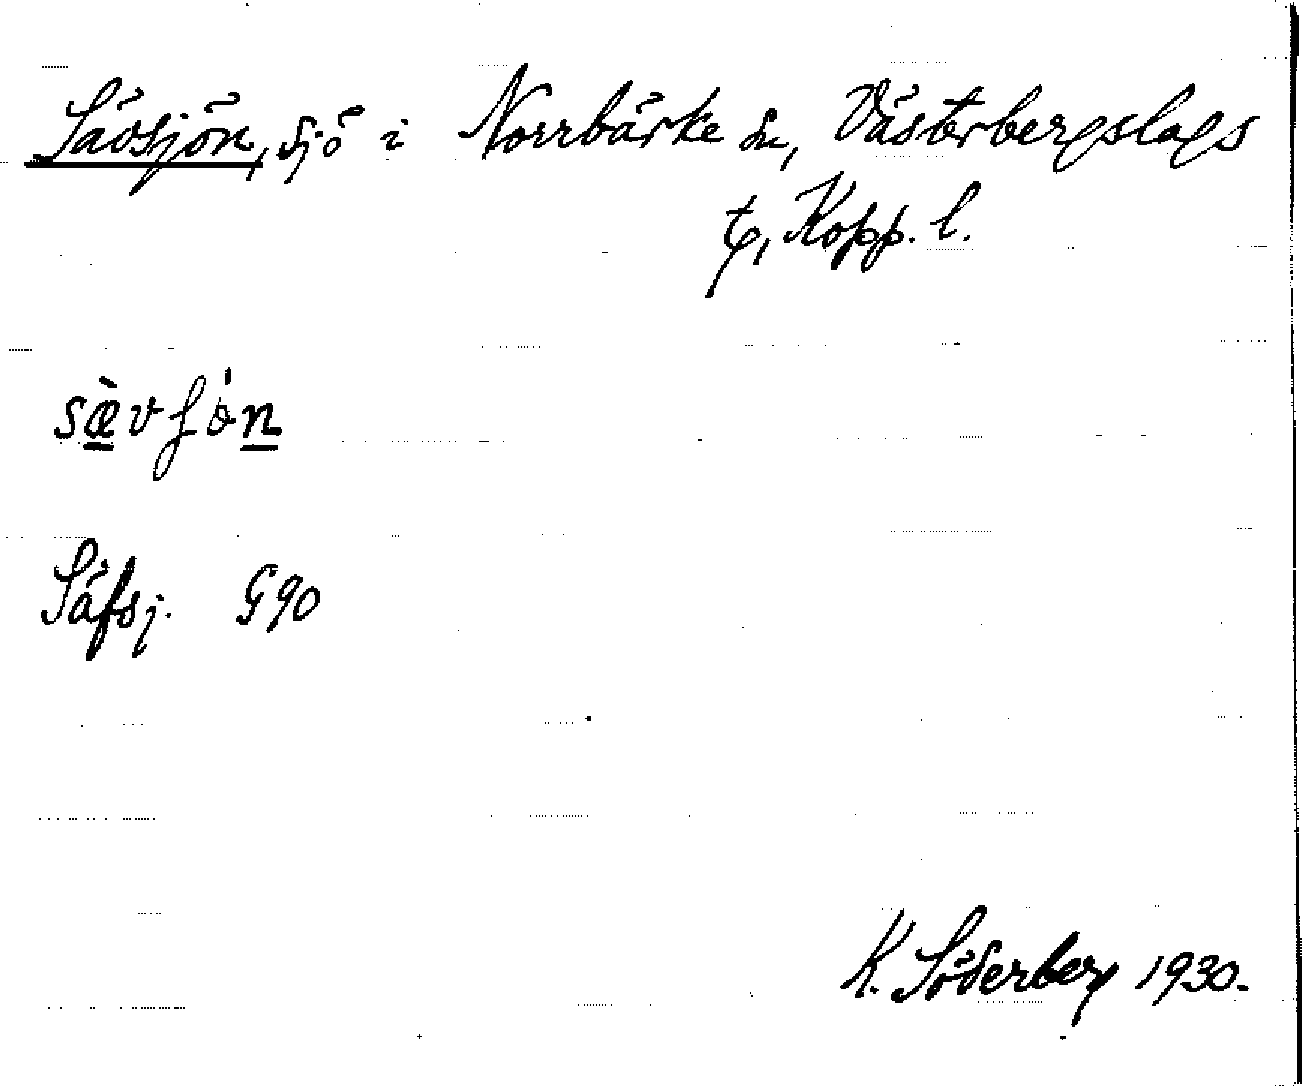 Sävsjön, sjö i Norrbärke sn, Västerbergslags
t, Kopp. l.
sæ̀vʃön
Säfsj. G90
K. Söderberg 1930.